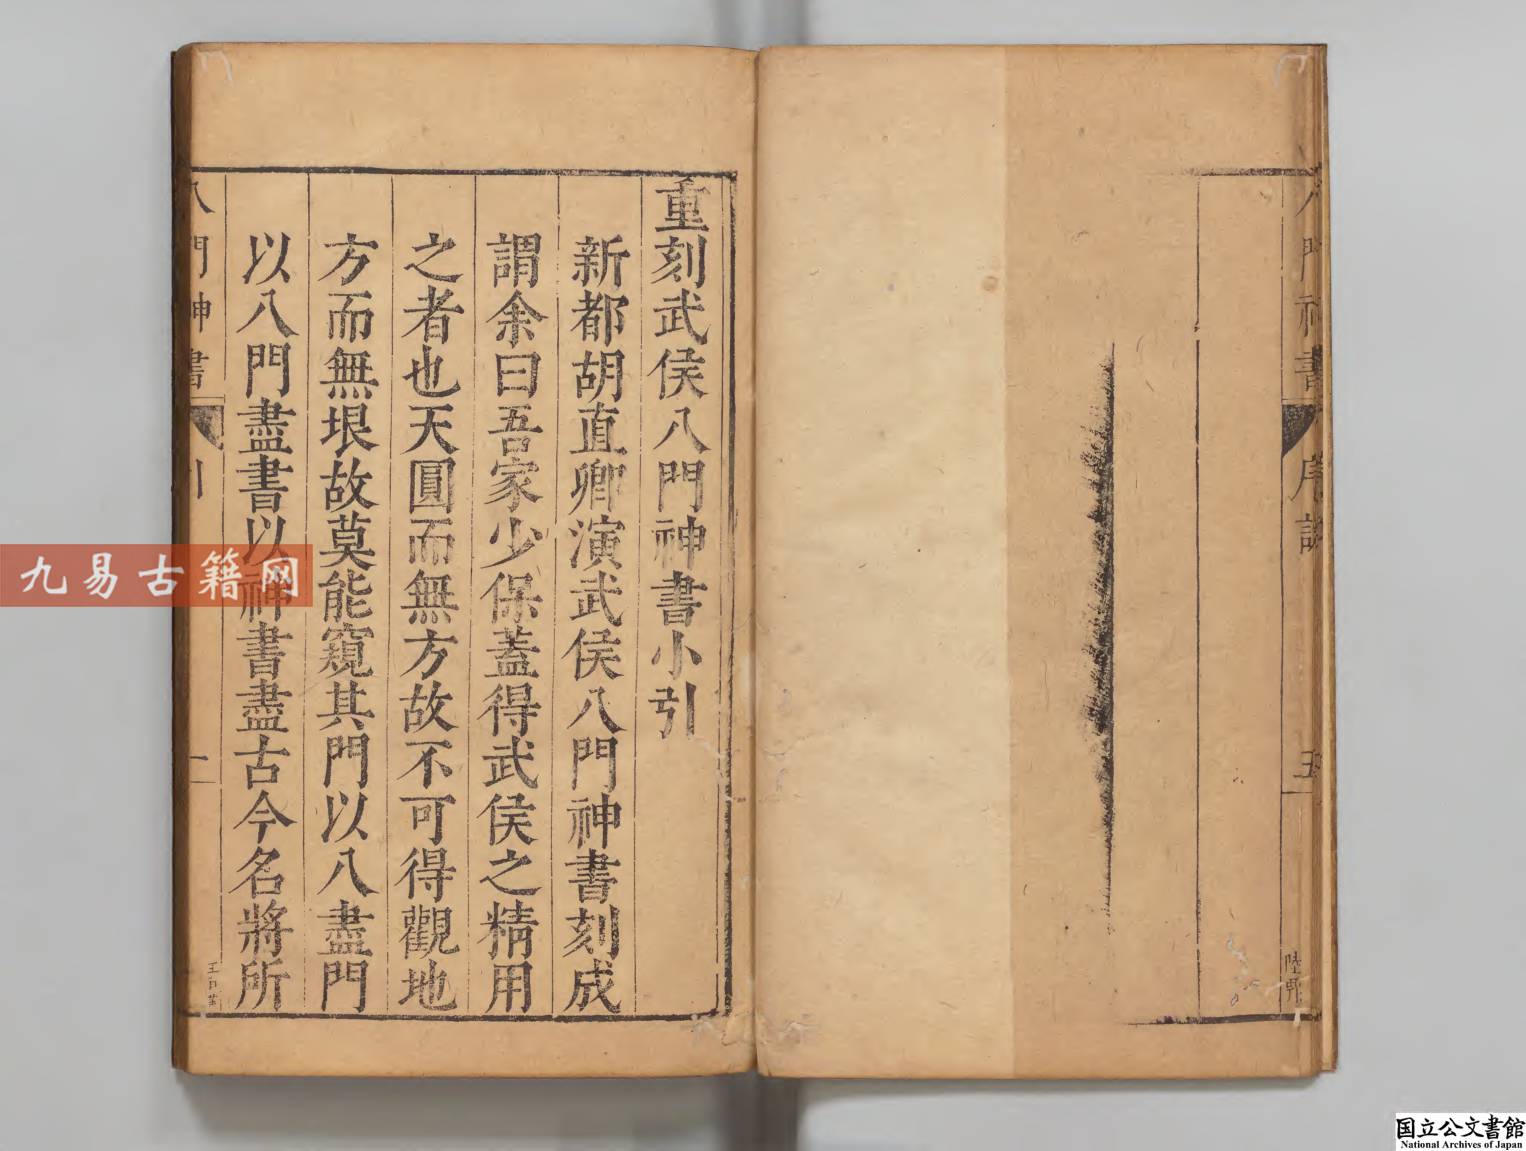 八門神書 序 五
重刻武侯八門神書小引
新都胡直卿演武侯八門神書刻成
謂余曰吾家少保蓋得武侯之精用
之者也天圓而無方故不可得觀地
方而無垠故莫能窺其門以八盡門
以八門盡書以神書盡古今名將所
八門神書 引 一
九易古籍网
国立公文書館
National Archives of Japan